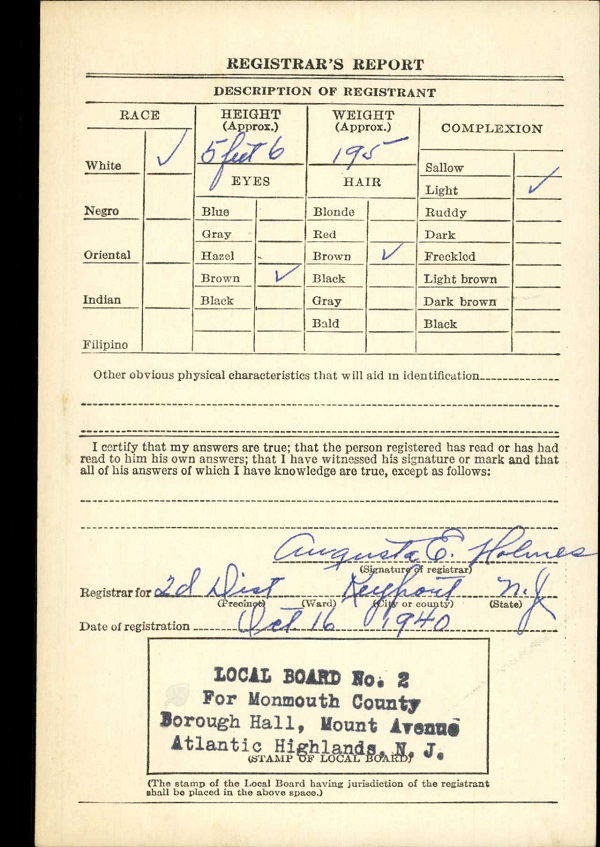 REGISTRAR'S REPORT
DESCRIPTION OF REGISTRANT
RACE
HEIGHT
(Approx.)
WEIGHT
(Approx.)
COMPLEXION
White ✓
5 feet 6
195
Sallow
EYES
HAIR
Light ✓
Negro
Blue
Blonde
Ruddy
Gray
Red
Dark
Oriental
Hazel
Brown ✓
Freckled
Brown ✓
Black
Light brown
Indian
Black
Gray
Dark brown
Bald
Black
Filipino
Other obvious physical characteristics that will aid in identification
I certify that my answers are true; that the person registered has read or has had
read to him his own answers; that I have witnessed his signature or mark and that
all of his answers of which I have knowledge are true, except as follows:
Augusta E. Holmes
(Signature of registrar)
Registrar for 2d Dist Keyport N.J.
(Precinct) (Ward) (City or county) (State)
Date of registration Oct. 16 1940
LOCAL BOARD No. 2
For Monmouth County
Borough Hall, Mount Avenue
Atlantic Highlands, N. J.
(STAMP OF LOCAL BOARD)
(The stamp of the Local Board having jurisdiction of the registrant
shall be placed in the above space.)